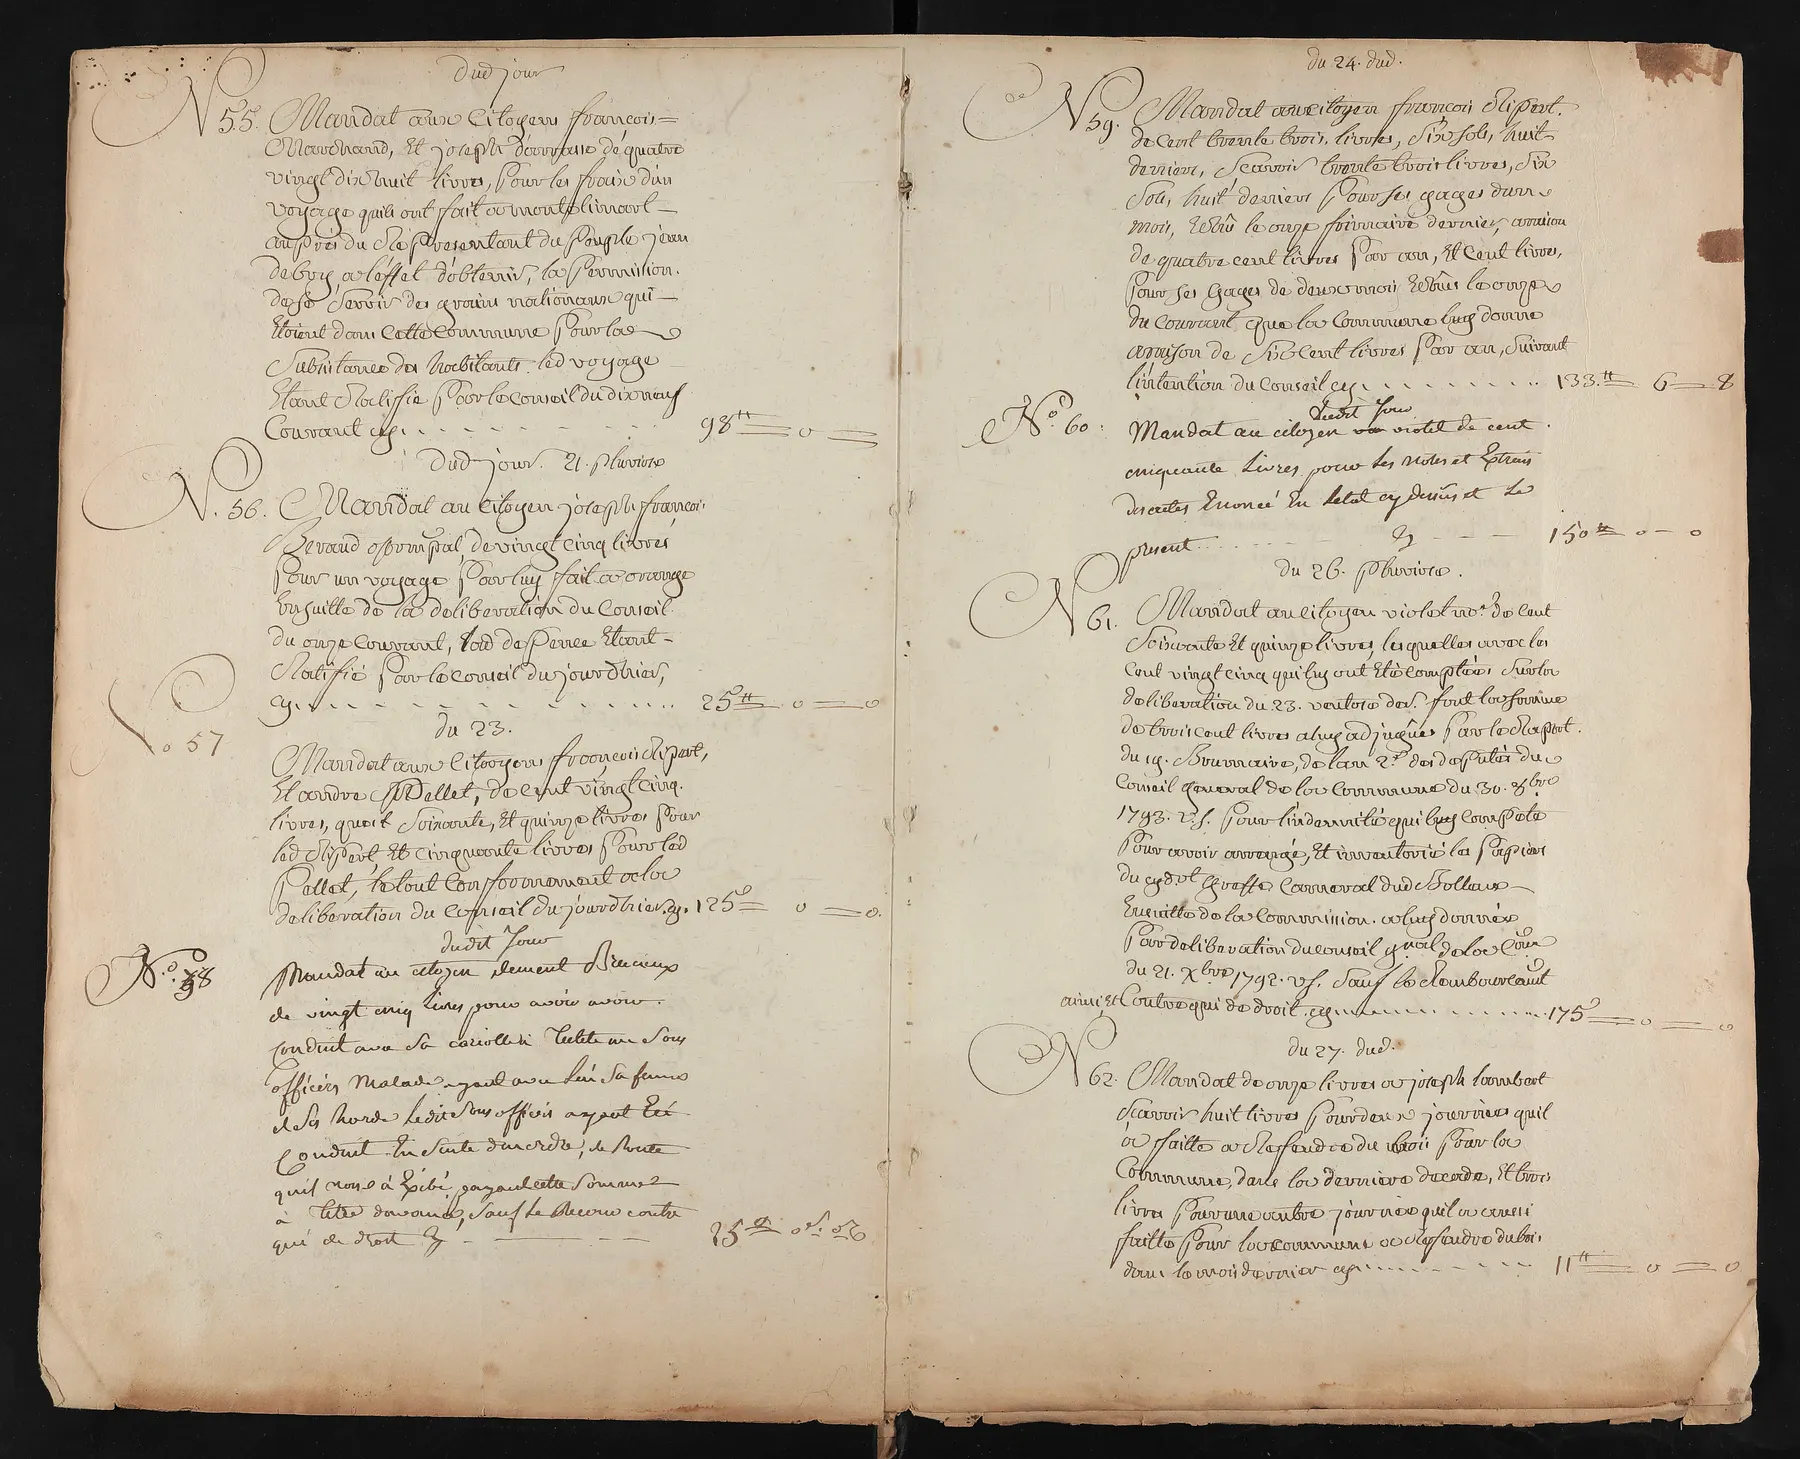 dud jour
N 55. Mandat aux Citoyens françois
Marchand, Et joseph dauvasse de quatre
vingt dix huit livres, pour les fraix d'un
voyage quils ont fait a montelimart
auprés du Representant du Peuple jean
debry, a léffet d'obtenir, la permission.
de se servir des grains nationaux qui
Etoient dans cette Commune pour la
Subsistance des habitants. led voyage
Etant Ratiffié par le conseil du dix neuf
Courant cy. 98ᵗᵗ o
dud jour. 21. pluviose
N. 56. Mandat au Citoyen joseph françois
Beraud de vingt cinq livres
pour un voyage par luy fait a orange
Ensuitte de la deliberation du Conseil.
du onze courant, lad depence Etant
Ratifié par le conseil du jourdhier,
cy. 25ᵗᵗ o o
du 23.
No 57
Mandat aux Citoyens françois Ripert,
Et andré Pellet, de cent vingt cinq.
livres, que soixante, Et quinze livres pour
led Ripert, Et cinquante livres pour led
Pellet, le tout Conformement a la
deliberation du Conseil du jourdhier. cy. 125 o o.
dudit Jour
N.º 58 Mandat au citoyen clement
de vingt cinq livres pour avoir
conduit avec sa un Sous
officier Malade ayant avec lui sa femme
ledit sous officier ayant Eté
Conduit En Suite d'un ordre, de Route
qu'il nous à Exibé, payant cette Somme
à, Sauf le Recours contre
qui de droit 25 oˢ. oᵈ
du 24. dud.
N 59. Mandat au citoyen françois Ripert.
de cent trente trois livres, six sols, huit
deniers, Scavoir trente trois livres, six
sols, huit deniers pour ses gages dun
mois, Echû le onze frimaire dernier, a raison
de quatre cent livres par an, Et Cent livres,
pour ses gages de deux mois Echûs le onze
du courant que la Commune luy donne
a raison de Six Cent livres par an, Suivant
l'intention du Conseil cy. 133.ᵗᵗ 6 8
dudit Jour
Nº. 60. Mandat au citoyen violet de cent
cinquante livres pour les notes et Extrais
des actes Enoncé En letat cy dessus et le
present cy 150ᵗᵗ o o
du 26. Pluviose.
N 61. Mandat au Citoyen violet noʳᵉ de cent
Soixante Et quinze livres, lesquelles avec les
cent vingt cinq qui luy ont Eté comptées sur la
deliberation du 23. ventose derʳ. font la somme
de trois cent livres a luy adjugées par le Raport.
du 19. Brumaire, de lan 2.ᵉ des deputés du
Conseil general de la Commune du 30. 8bre
1793. v.s. pour l'indemnité qui luy compete
pour avoir arrangé, Et inventorié les papiers
du cydᵛᵗ Greffe Carneval dud Bollene
Ensuitte de la Commission a luy donnée
par deliberation du conseil gñal de la Comᵉ
du 21. Xbre 1792. v.s. Sauf le Remboursement
ainsi Et Contre qui de droit. cy 175 o o
du 27. dud.
N 62. Mandat de onze livres a joseph lambert
Scavoir huit livres pour deux journées qu'il
a faitte a Reffendre du bois pour la
Commune, dans la derniere decade, Et trois
livres pour une autre journée qu'il a aussi
faitte pour la commune a Refendre du bois
dans le mois dernier cy 11ᵗᵗ o o